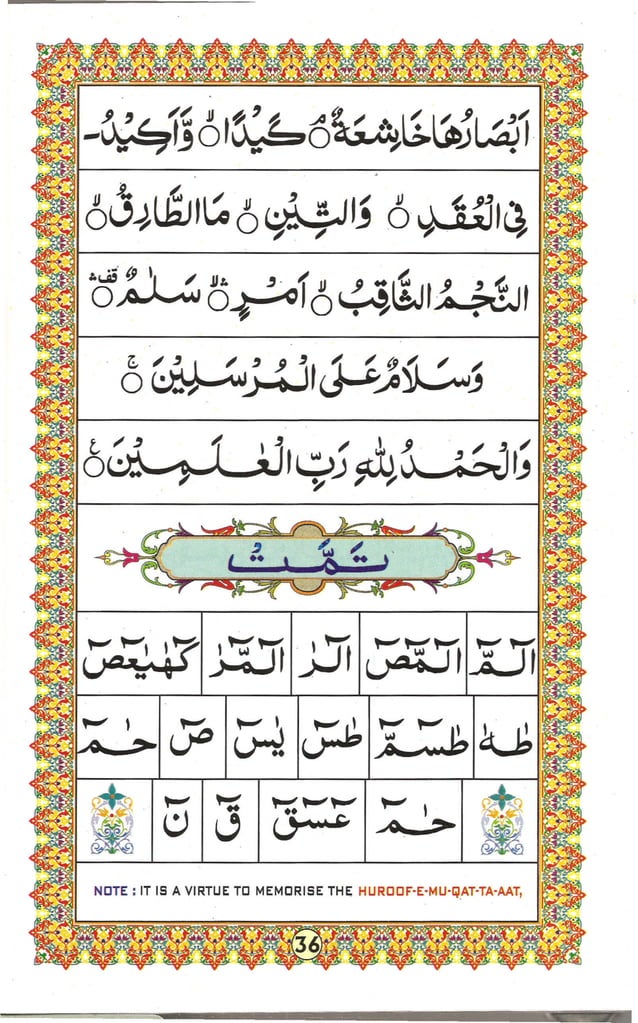 اَبْصَارُهَا خَاشِعَةٌ ۘ○ كَيْدًا ۙ○ وَّاَكِيْدُ-
فِى الْعُقَدِ ۙ○ وَالتِّيْنِ ۙ○ مَا الطَّارِقُ ۙ○
النَّجْمُ الثَّاقِبُ ۙ○ اَمْرٍ ۛۙ○ سَلٰمٌ ۛقف○
وَسَلَامٌ عَلَى الْمُرْسَلِيْنَ ۚ○
وَالْحَمْدُ لِلّٰهِ رَبِّ الْعٰلَمِيْنَ ○ع
تَمَّتْ
الٓمّٓ الٓمّٓصٓ الٓرٰ الٓمّٓرٰ كٓهٰيٰعٓصٓ
طٰهٰ طٰسٓمّٓ طٰسٓ يٰسٓ صٓ حٰمٓ
حٰمٓ عٓسٓقٓ قٓ نٓ
NOTE : IT IS A VIRTUE TO MEMORISE THE HUROOF-E-MU-QAT-TA-AAT,
36